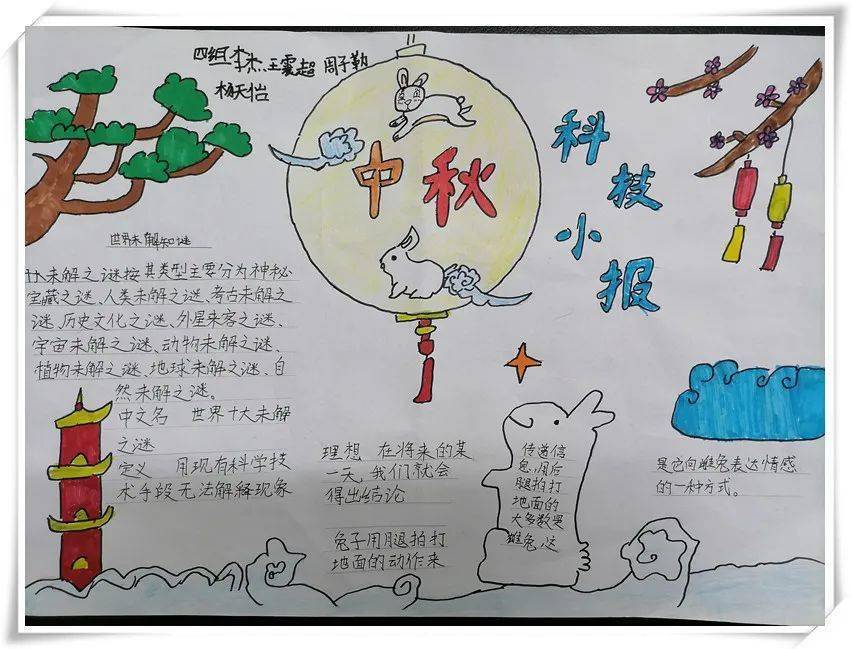 四组:李杰、王震超 周子勤
杨天怡
中秋
科技小报
世界未解知谜
十大未解之谜按其类型主要分为神秘
宝藏之谜、人类未解之谜、考古未解之
谜、历史文化之谜、外星来客之谜、
宇宙未解之谜、动物未解之谜、
植物未解之谜、地球未解之谜、自
然未解之谜。
中文名 世界十大未解
之谜
定义 用现有科学技
术手段无法解释现象
理想 在将来的某
一天,我们就会
得出结论
兔子用腿拍打
地面的动作来
传递信
息,用后
腿拍打
地面的
大多数是
雄兔,这
是它向雌兔表达情感
的一种方式。